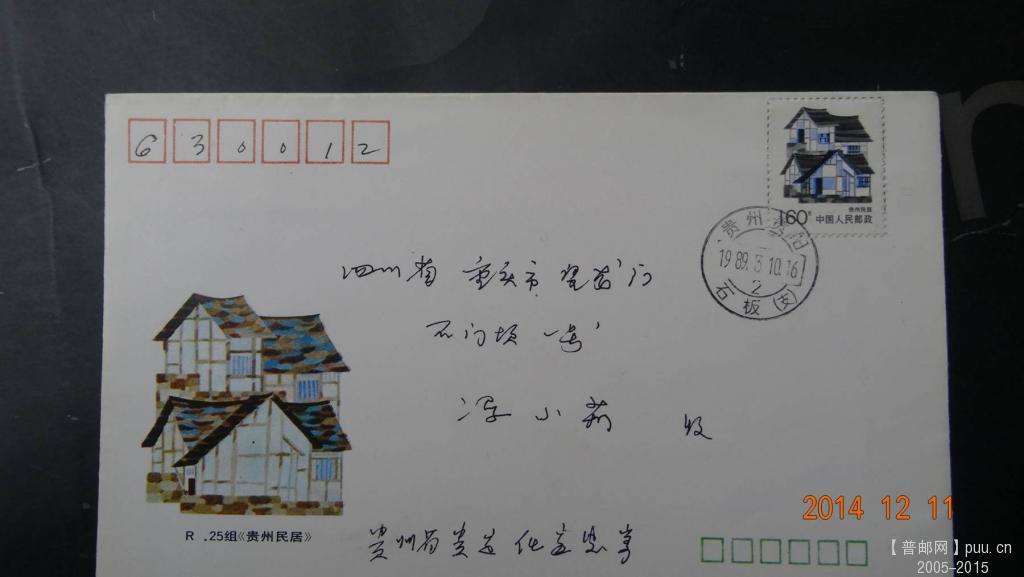 630012
贵州民居
160分 中国人民邮政
贵州贵阳
1989.3.10.16
2
石板(支)
四川省 重庆市
石门坎 一号
冯小莉 收
R .25组《贵州民居》
贵州省贵
2014 12 11
【普邮网】puu.cn
2005-2015